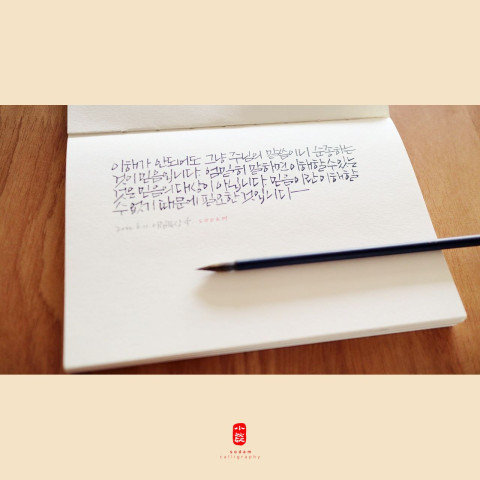 이해가 안되어도 그냥 주님의 말씀이니 순종하는
것이 믿음입니다. 엄밀히 말하면 이해할 수 있는
것은 믿음의 대상이 아닙니다. 믿음이란 이해할
수 없기 때문에 필요한 것입니다
sodam
sodam
calligraphy